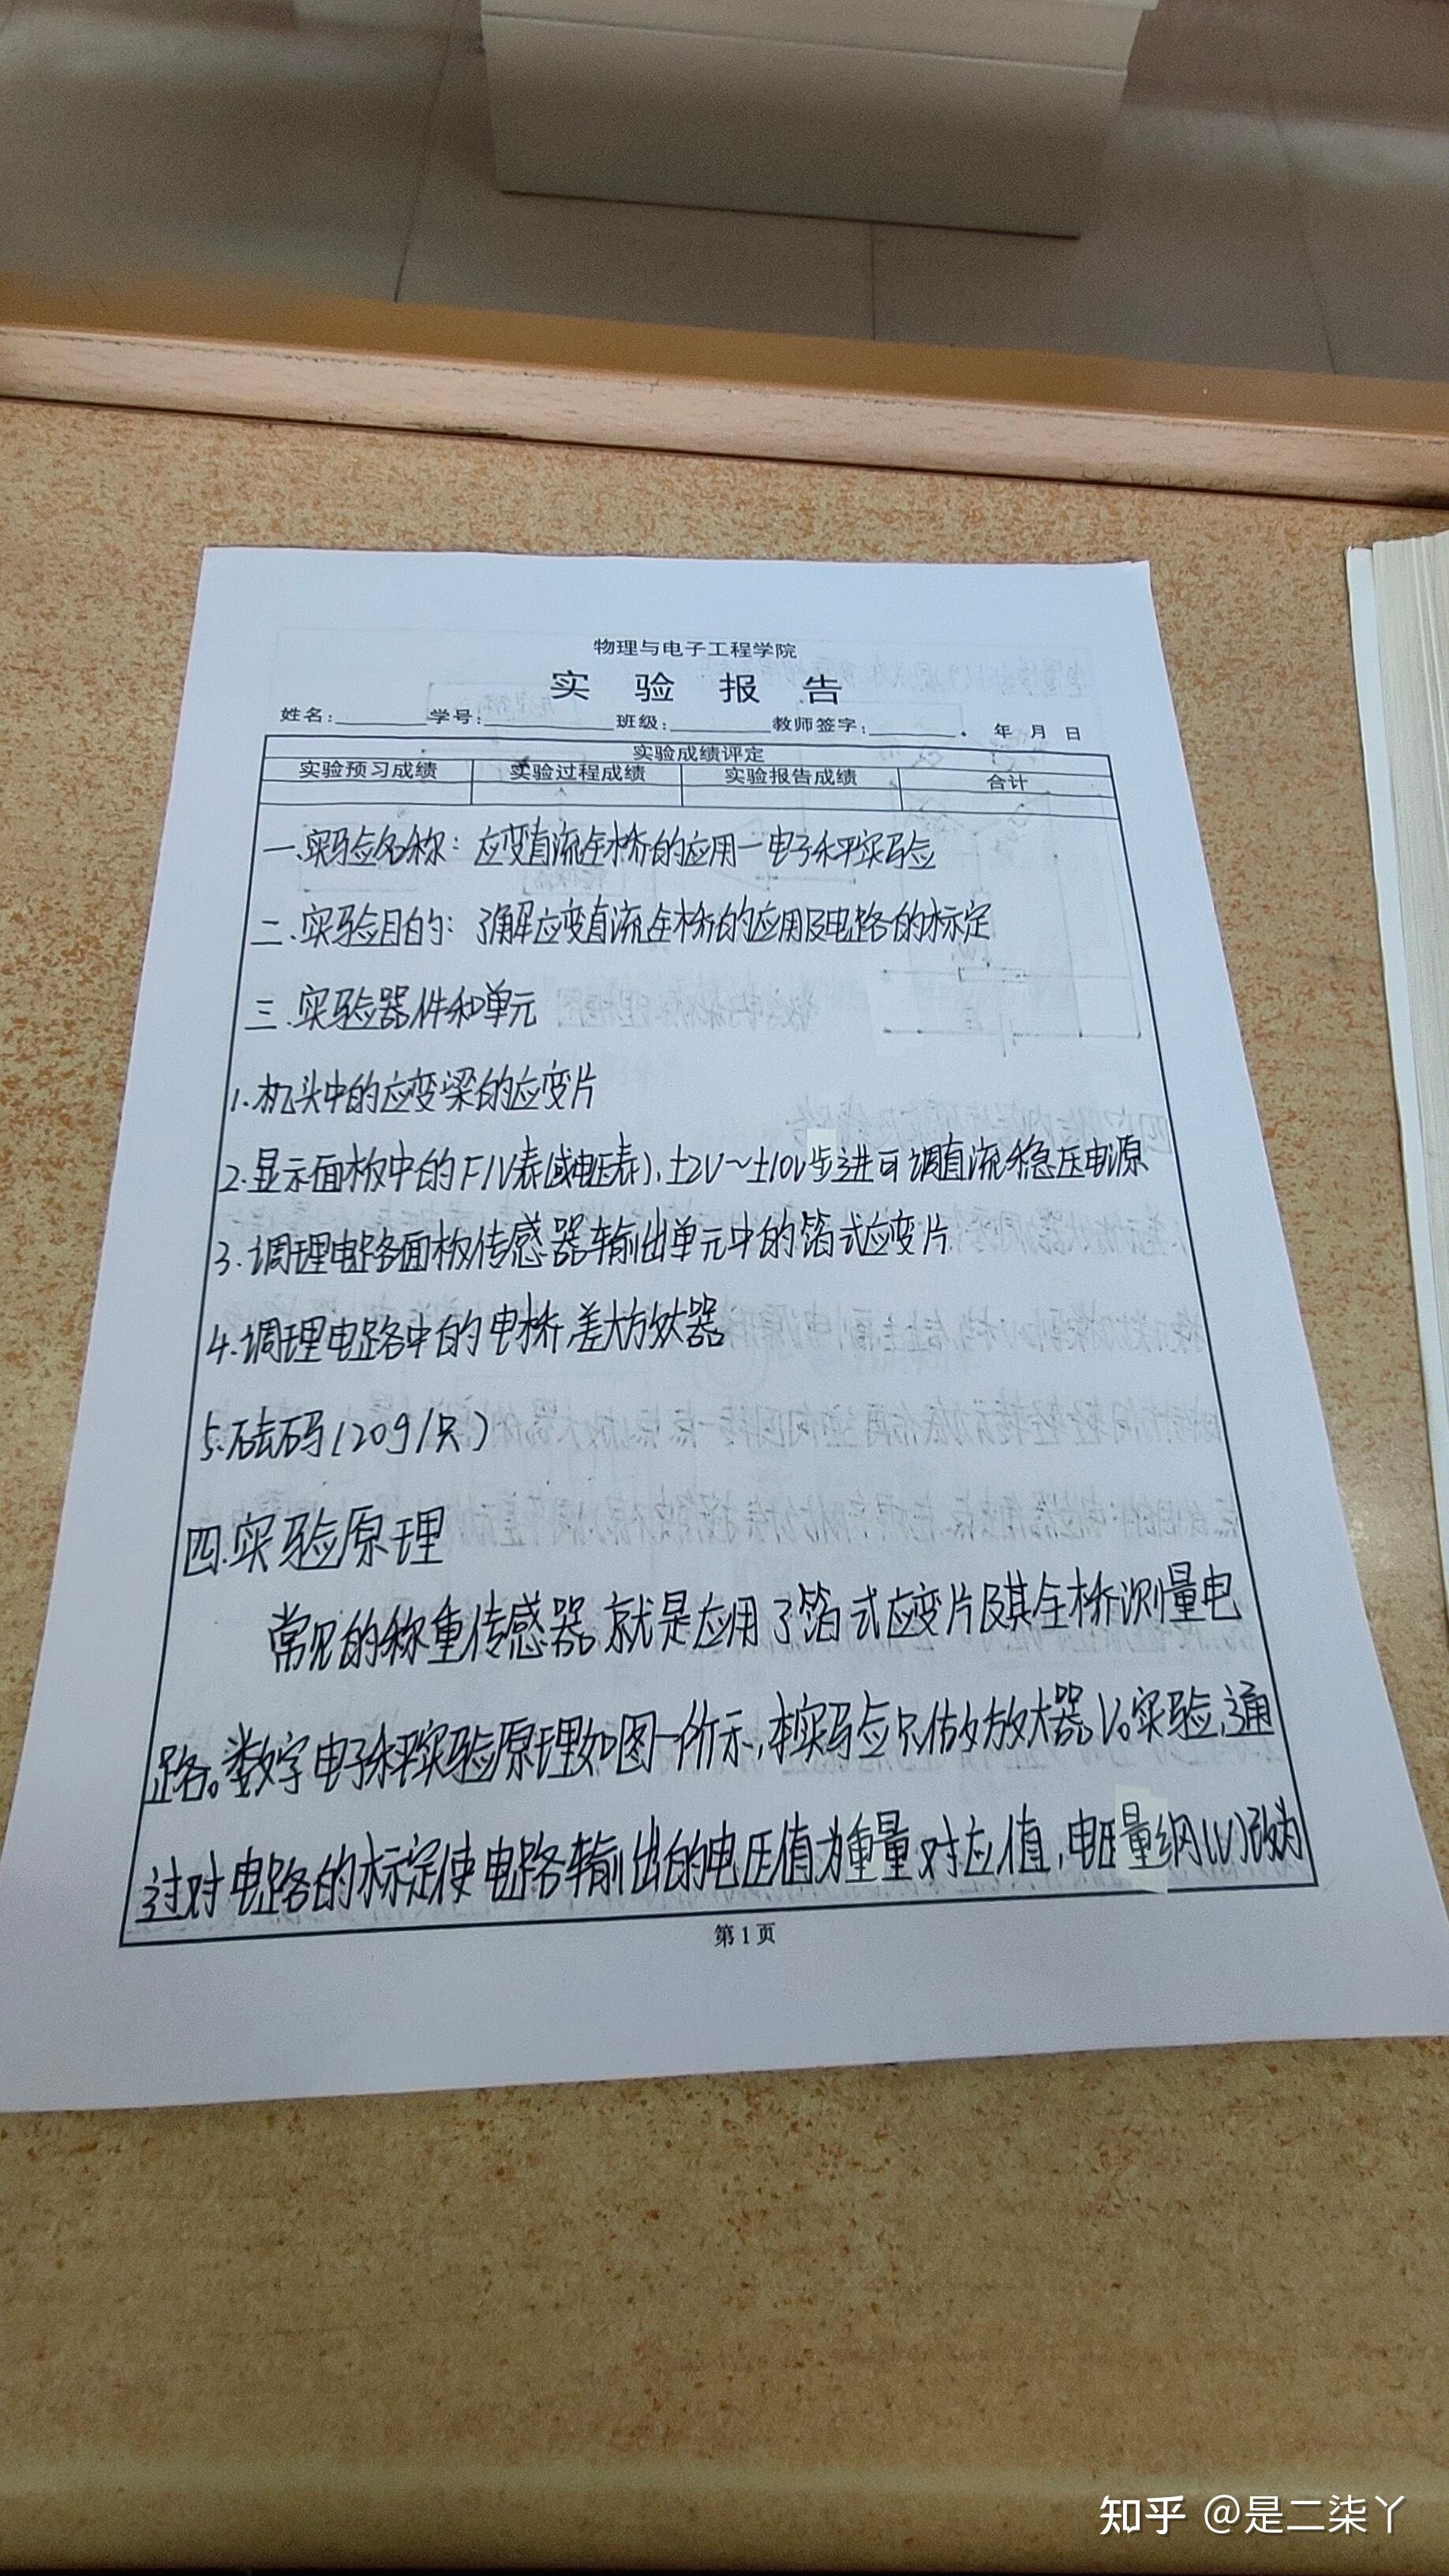 物理与电子工程学院
实验报告
姓名:________学号:________班级:________教师签字:________. 年 月 日
实验成绩评定
实验预习成绩 实验过程成绩 实验报告成绩 合计
一.实验名称: 应变直流全桥的应用—电子秤实验
二.实验目的: 了解应变直流全桥的应用及电路的标定
三.实验器件和单元
1.机头中的应变梁的应变片
2.显示面板中的F/V表(或电压表)、±2V~±10V步进可调直流稳压电源
3.调理电路面板传感器输出单元中的箔式应变片
4.调理电路中的电桥、差大放大器
5.砝码(20g/只)
四.实验原理
常见的称重传感器就是应用了箔式应变片及其全桥测量电
路。数字电子秤实验原理如图一所示,本实验只做放大器Vo实验,通
过对电路的标定使电路输出的电压值为重量对应值,电压量纲(V)改为
第1页
知乎 @是二柒丫